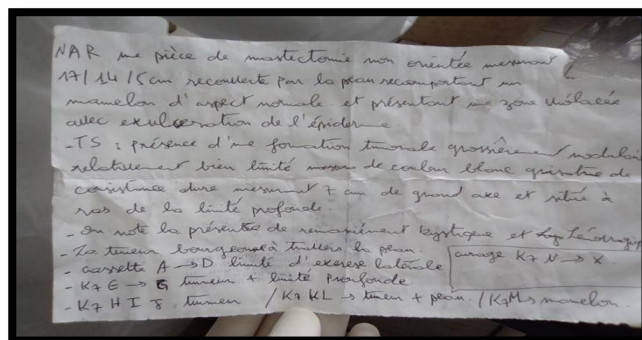 NAR une pièce de mastectomie non orientée mesurant
17/14/5cm recouverte par la peau recomportant un
mamelon d'aspect normale et présentant une zone violacée
avec exulceration de l'épiderme
-TS : présence d'une formation tumorale grossièrement nodulai
relativement bien limité de couleur blanc grisatre de
consistance dure mesurant 7 cm de grand axe et située à
ras de la limite profonde
- On note la présente de remaniement kystique et
- La tumeur bourgeonne à travers la peau.
- cassette A → D limite d'exerese latérale
curage K7 N → X
- K7 E → G tumeur + limite profonde
- K7 H I J tumeur / K7 KL → tumeur + peau / K7M → mamelon.